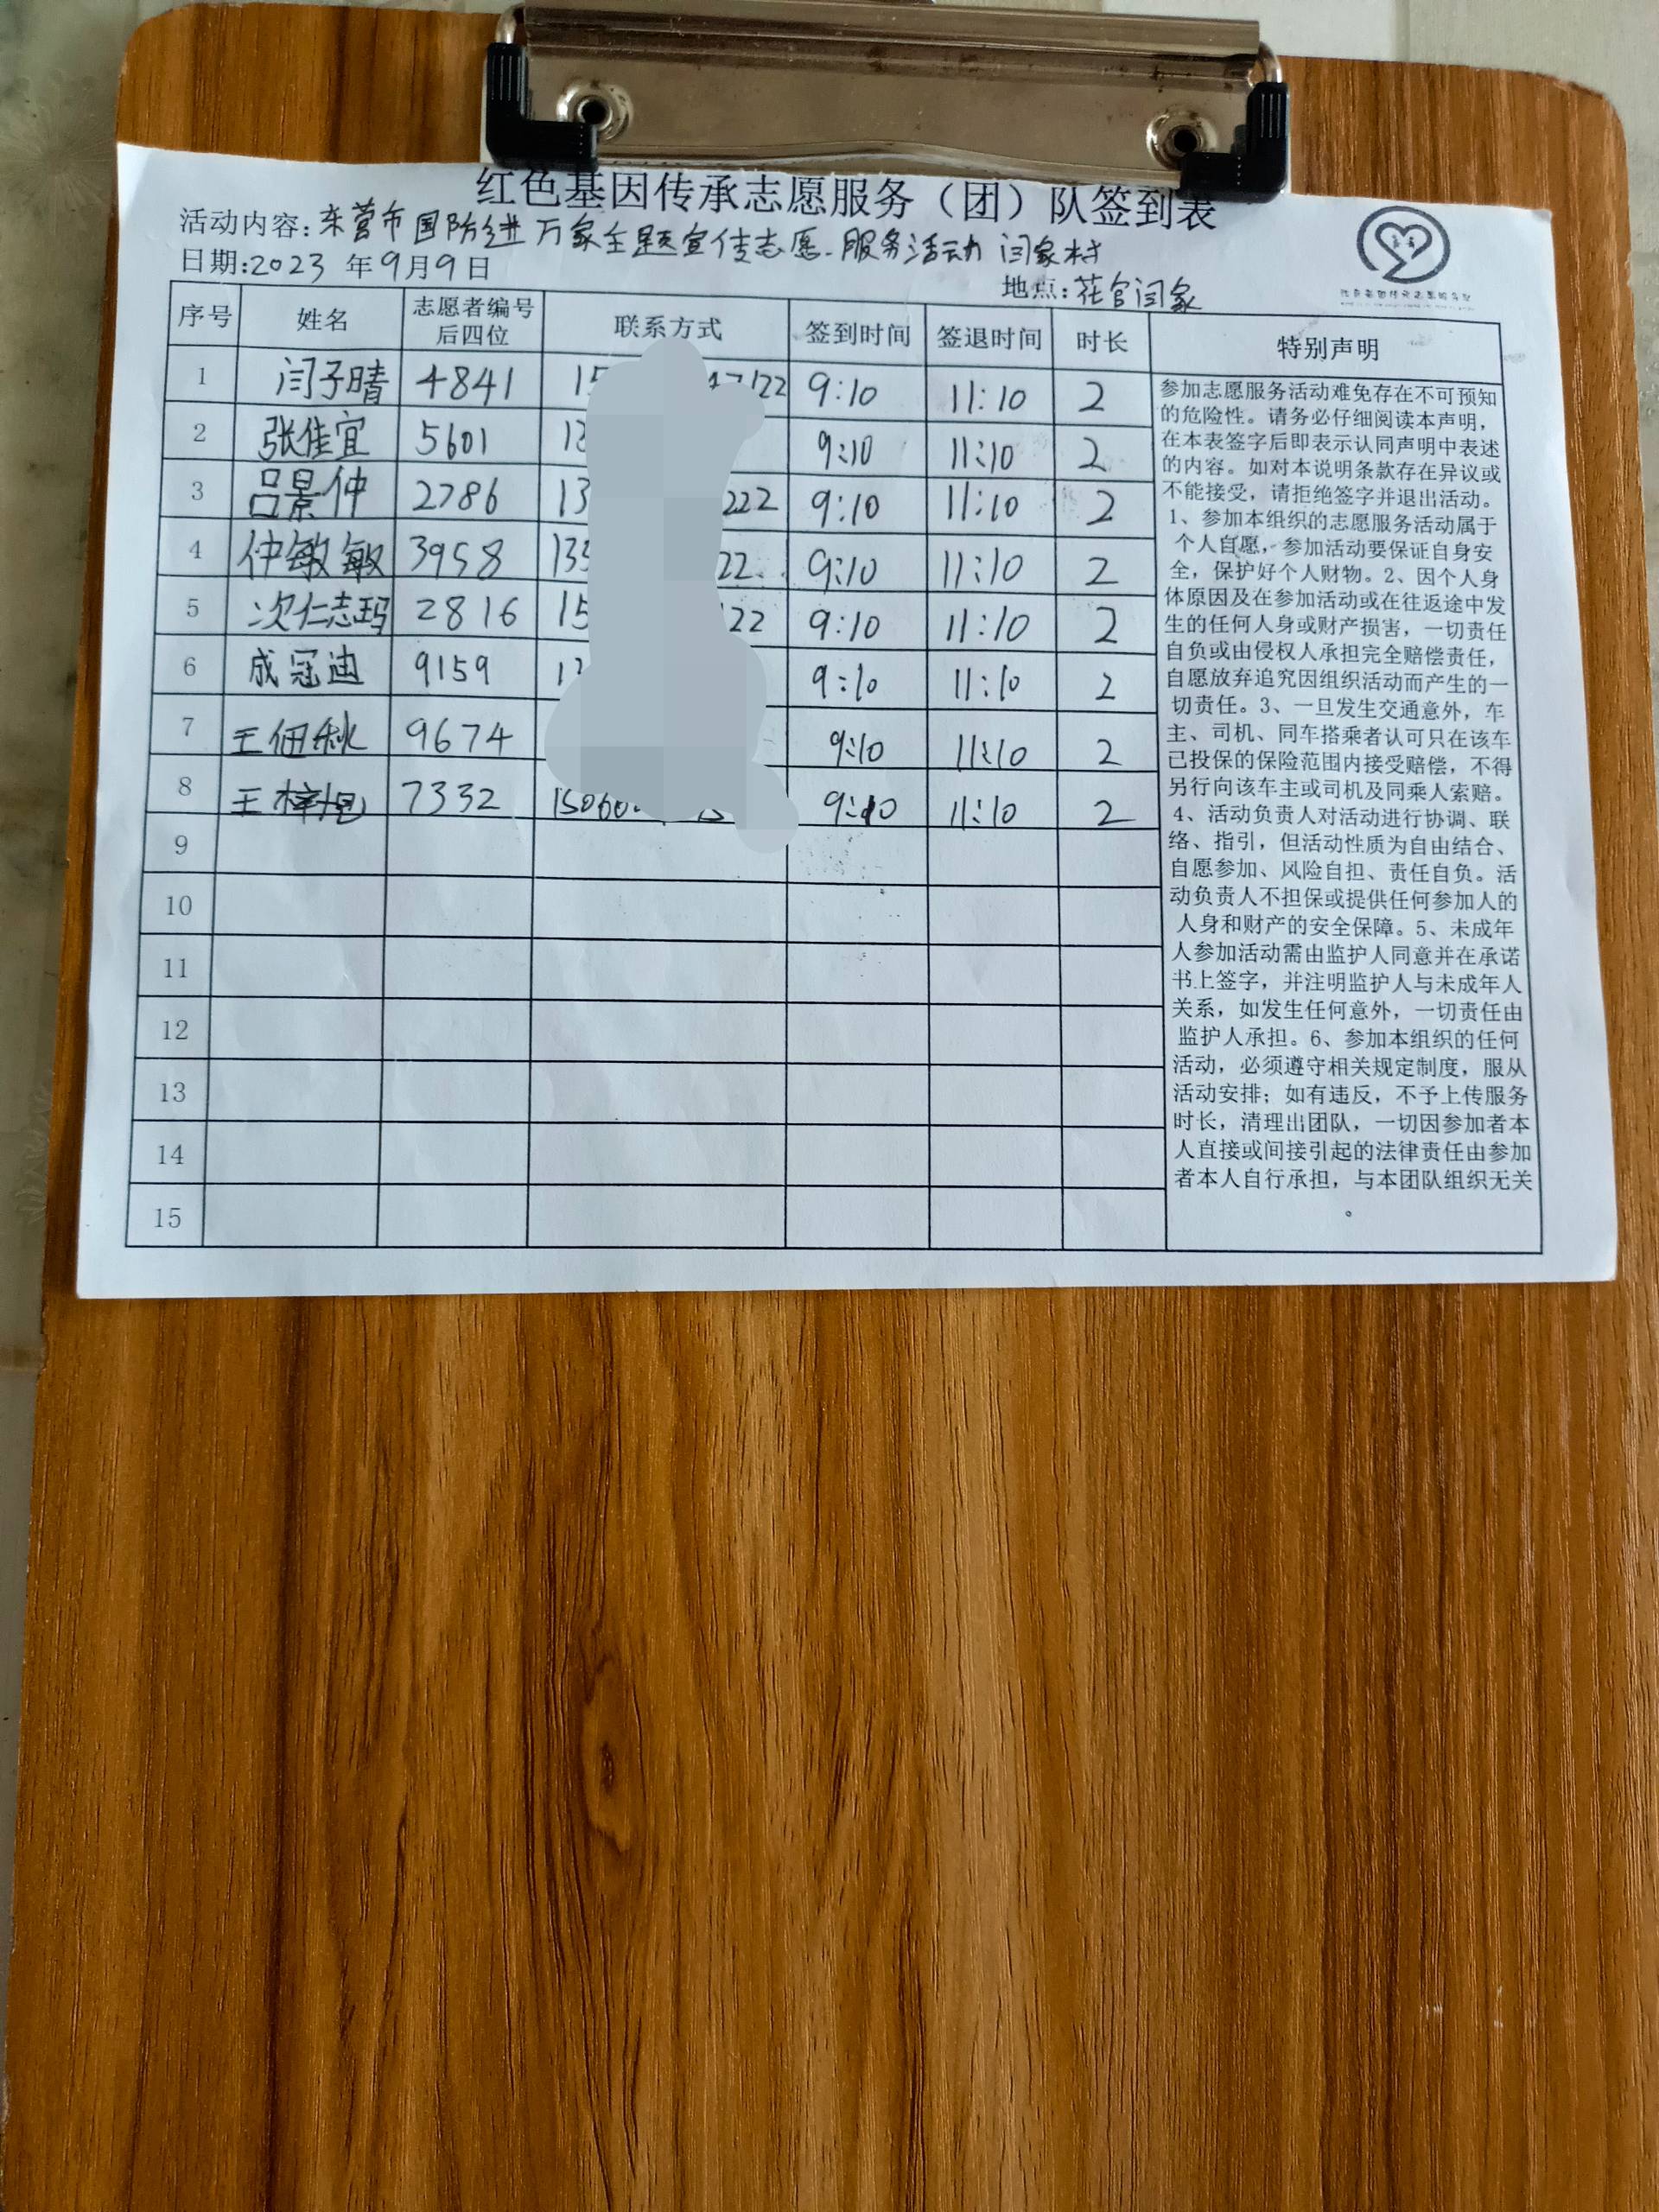 红色基因传承志愿服务（团）队签到表
活动内容: 东营市国防进万家主题宣传志愿服务活动 闫家村
日期:2023 年9月9日
地点:花官闫家
序号 姓名 志愿者编号后四位 联系方式 签到时间 签退时间 时长 特别声明
1 闫子晴 4841 15 47122 9:10 11:10 2
2 张佳宜 5601 13 9:10 11:10 2
3 吕景仲 2786 13 222 9:10 11:10 2
4 仲敏敏 3958 135 22 9:10 11:10 2
5 次仁志玛 2816 15 22 9:10 11:10 2
6 成冠迪 9159 9:10 11:10 2
7 王佃秋 9674 9:10 11:10 2
8 王梓旭 7332 15060 9:10 11:10 2
9
10
11
12
13
14
15
参加志愿服务活动难免存在不可预知
的危险性。请务必仔细阅读本声明，
在本表签字后即表示认同声明中表述
的内容。如对本说明条款存在异议或
不能接受，请拒绝签字并退出活动。
1、参加本组织的志愿服务活动属于
个人自愿，参加活动要保证自身安
全，保护好个人财物。2、因个人身
体原因及在参加活动或在往返途中发
生的任何人身或财产损害，一切责任
自负或由侵权人承担完全赔偿责任，
自愿放弃追究因组织活动而产生的一
切责任。3、一旦发生交通意外，车
主、司机、同车搭乘者认可只在该车
已投保的保险范围内接受赔偿，不得
另行向该车主或司机及同乘人索赔。
4、活动负责人对活动进行协调、联
络、指引，但活动性质为自由结合、
自愿参加、风险自担、责任自负。活
动负责人不担保或提供任何参加人的
人身和财产的安全保障。5、未成年
人参加活动需由监护人同意并在承诺
书上签字，并注明监护人与未成年人
关系，如发生任何意外，一切责任由
监护人承担。6、参加本组织的任何
活动，必须遵守相关规定制度，服从
活动安排；如有违反，不予上传服务
时长，清理出团队，一切因参加者本
人直接或间接引起的法律责任由参加
者本人自行承担，与本团队组织无关
。